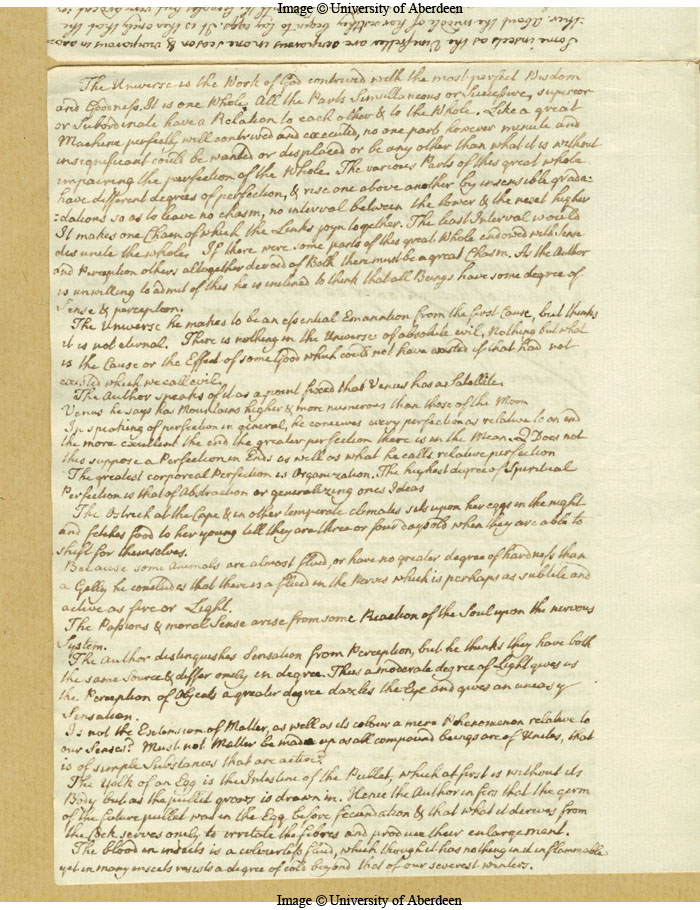 Image © University of Aberdeen
The Universe is the Work of God contrived with the most perfect Wisdom
and Goodness. It is one Whole. All the Parts Simultaneous or Successive, superior
or Subordinate have a Relation to each other & to the Whole. Like a great
Machine perfectly well contrived and executed, no one part however minute and
insignificant could be wanted or displaced or be any other than what it is without
impairing the perfection of the Whole. The various Parts of this great whole
have different degrees of perfection, & rise one above another by insensible grada:
:dations so as to leave no chasm, no interval between the lower & the next higher
It makes one Chain of which the Links joyn together. The least Interval would
disunite the whole. If there were some parts of this great Whole endowed with Sense
and Perception others altogether devoid of Both there must be a great Chasm. As the Author
is unwilling to admit of this he is inclined to think that all Beings have some degree of
Sense & perception.
The Universe he makes to be an essential Emanation from the first Cause, but thinks
it is not eternal. There is nothing in the Universe of absolute evil. Nothing but what
is the Cause or the Effect of some Good which could not have existed if that had not
existed which we call evil.
The Author speaks of it as a point fixed that Venus has a Satellite.
Venus he says has Mountains higher & more numerous than those of the Moon
In speaking of perfection in general, he conceives every perfection as relative to an end
the more excellent the end the greater perfection there is in the Mean. Q Does not
this suppose a Perfection in Ends as well as what he calls relative perfection
The greatest corporeal Perfection is Organization. The highest degree of Spiritual
Perfection is that of Abstraction or generalizing ones Ideas
The Ostrich at the Cape & in other temperate climates sits upon her eggs in the night
and fetches food to her young till they are three or four days old when they are able to
shift for themselves.
Because some Animals are almost fluid, or have no greater degree of hardness than
a Gelly he concludes that there is a fluid in the Nerves which is perhaps as subtile and
active as fire or Light.
The Passions & moral Sense arise from some Reaction of the Soul upon the nervous
System.
The Author distinguishes Sensation from Perception, but he thinks they have both
the same Source & differ onely in degree. Thus a moderate degree of Light gives us
the Perception of Objects a greater degree dazles the Eye and gives an uneasy
Sensation.
Is not the Extension of Matter, as well as its colour a mere Phenomenon relative to
our Senses? Must not Matter be made up as all compound beings are of Unites, that
is of simple Substances that are active?
The Yolk of an Egg is the Intestine of the Pullet, which at first is without its
Body but as the pullet grows is drawn in. Hence the Author infers that the germ
of the future pullet was in the Egg before fecundation & that what it derives from
the Cock serves onely to irritate the fibres and produce their enlargement.
The blood in insects is a colourless fluid, which though it has nothing in it inflammable
yet in many insects resists a degree of cold beyond that of our severest winters.
Image © University of Aberdeen